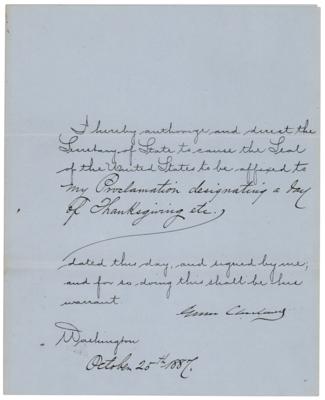 I hereby authorize and direct the
Secretary of State to cause the Seal
of the United States to be affixed to
my Proclamation designating a day
of Thanksgiving etc.,
dated this day, and signed by me;
and for so doing this shall be his
warrant
Grover Cleveland
Washington
October 25th 1887.